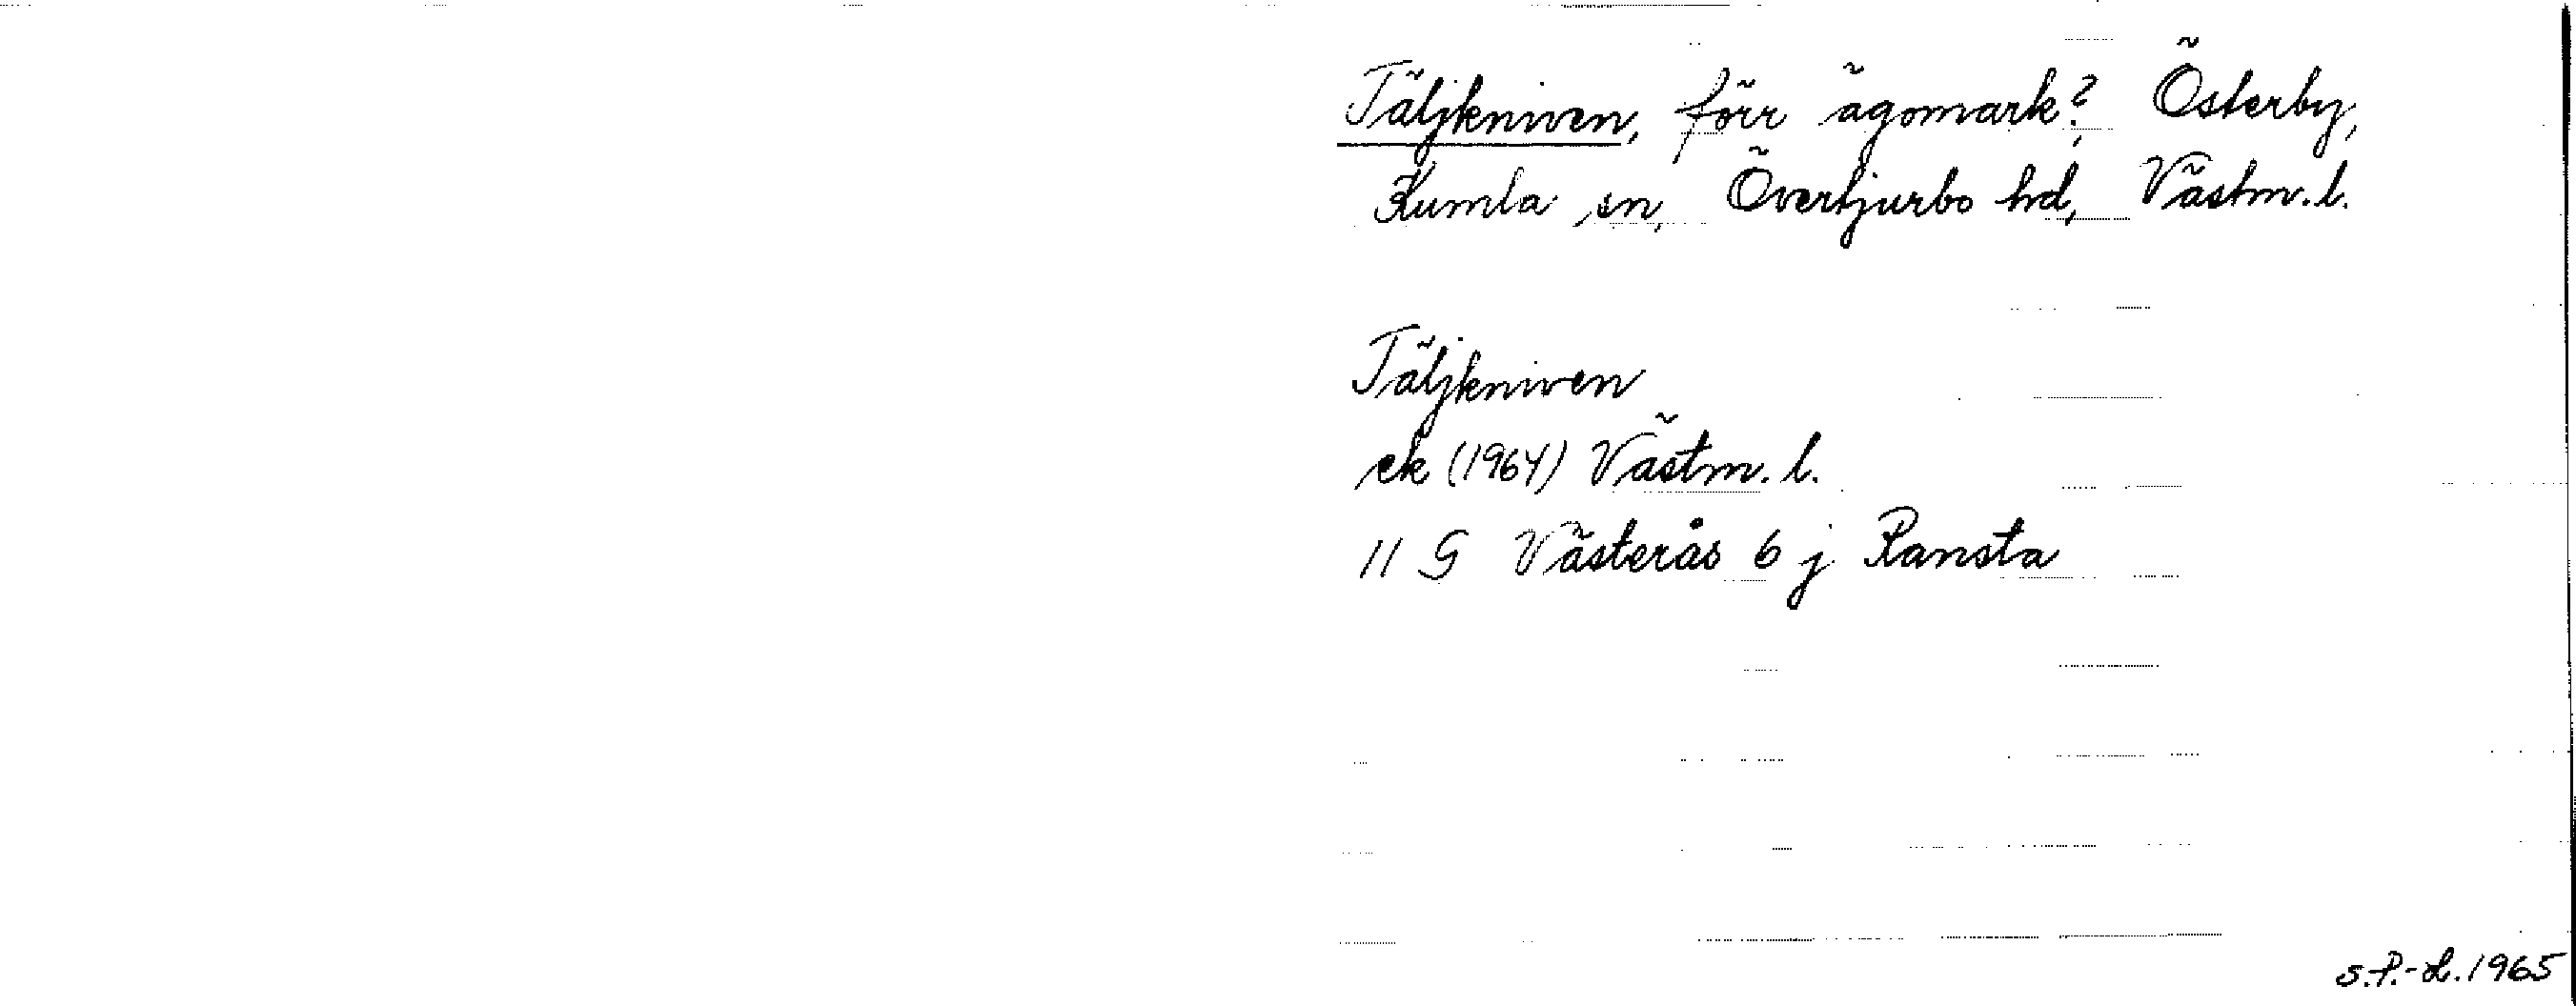 Täljkniven, förr ägomark?, Österby,
Kumla sn, Övertjurbo hd, Västm. l.
Täljkniven
ek (1964) Västm. l.
11 G Västerås 6 j Ransta
S.P.-L. 1965